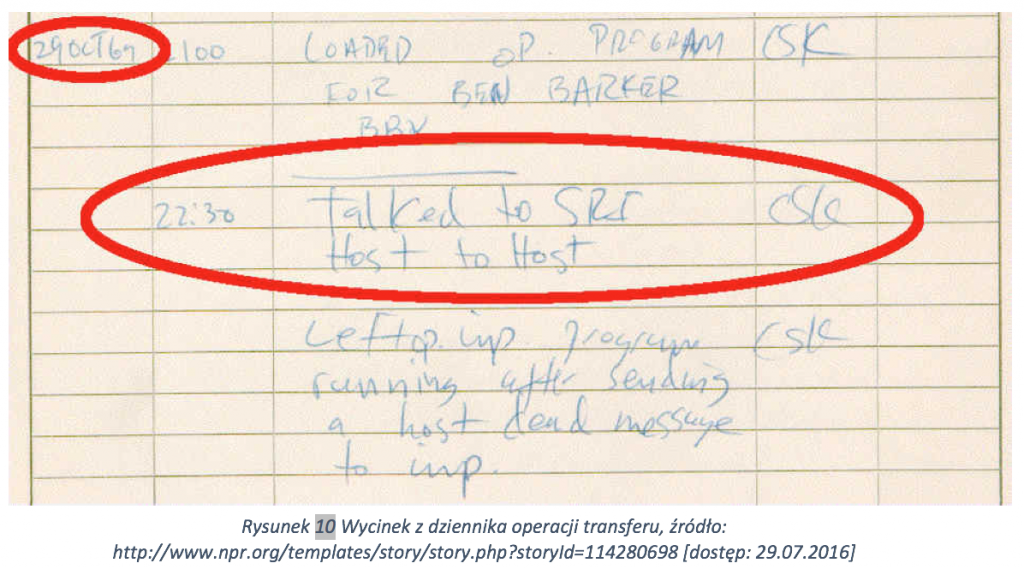 29 OCT 69 2100 LOADED OP. PROGRAM CSK
FOR BEN BARKER
BBN
22:30 Talked to SRI CSK
Host to Host
Left op. imp. program CSK
running after sending
a host dead message
to imp.
Rysunek 10 Wycinek z dziennika operacji transferu, źródło:
http://www.npr.org/templates/story/story.php?storyId=114280698 [dostęp: 29.07.2016]